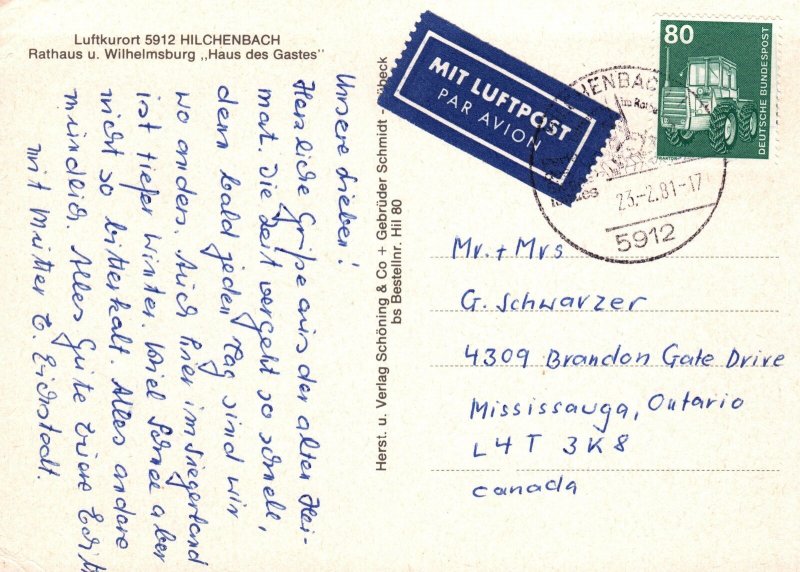 Luftkurort 5912 HILCHENBACH
Rathaus u. Wilhelmsburg ,,Haus des Gastes"
Unsere Lieben!
Herzliche Grüße aus der alten Hei-
mat. Die Zeit vergeht so schnell,
denn bald jeden Tag sind wir
wo anders. Auch hier im Siegerland
ist tiefer Winter. Viel Schnee aber
nicht so bitterkalt. Alles andere
mündlich. Alles Gute Eure Edith
mit Mutter E. Eichstädt.
Herst. u. Verlag Schöning & Co + Gebrüder Schmidt
bs Bestellnr. Hil 80
MIT LUFTPOST
PAR AVION
80
DEUTSCHE BUNDESPOST
23.-2.81-17
5912
Mr. + Mrs
G. Schwarzer
4309 Brandon Gate Drive
Mississauga, Ontario
L4T 3K8
Canada